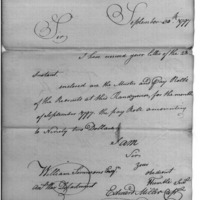 September 30th 1797
Sir
I have received your letter of the 23d
Instant
enclosed are the Muster and Pay Rolls
of the Recruits at this Rendezvous for the month
of September 1797. the pay Rolls amounting
to Ninety two Dollars
I am
Sir
Your
obedient
William Simmons Esqr
Humble Servt
War Department
Edward Miller Captn